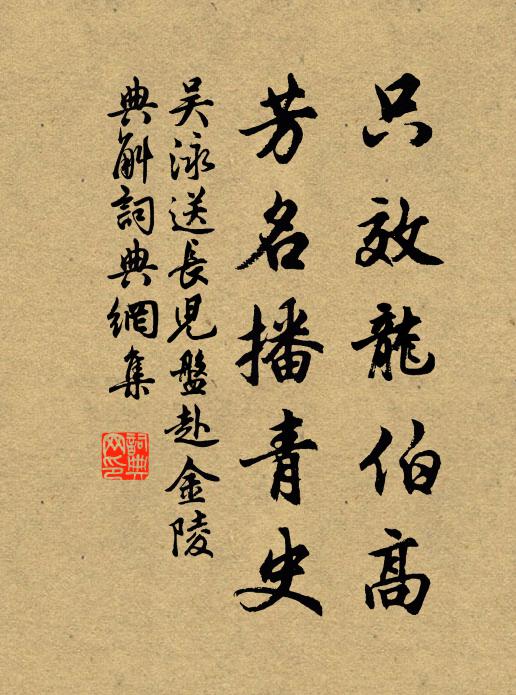 只效龍伯高
芳名播青史
吴泳送長兒盤赴金陵
典解詞典網集
詞典网印